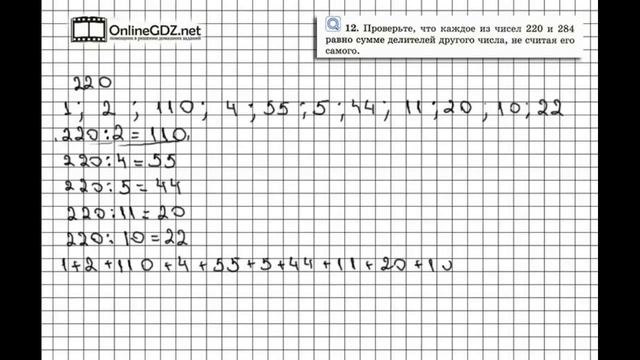 OnlineGDZ.net
помощники в решении домашних заданий
12. Проверьте, что каждое из чисел 220 и 284
равно сумме делителей другого числа, не считая его
самого.
220
1 ; 2 ; 110 ; 4 ; 55 ; 5 ; 44 ; 11 ; 20 ; 10 ; 22
220 : 2 = 110
220 : 4 = 55
220 : 5 = 44
220 : 11 = 20
220 : 10 = 22
1 + 2 + 110 + 4 + 55 + 5 + 44 + 11 + 20 + 10